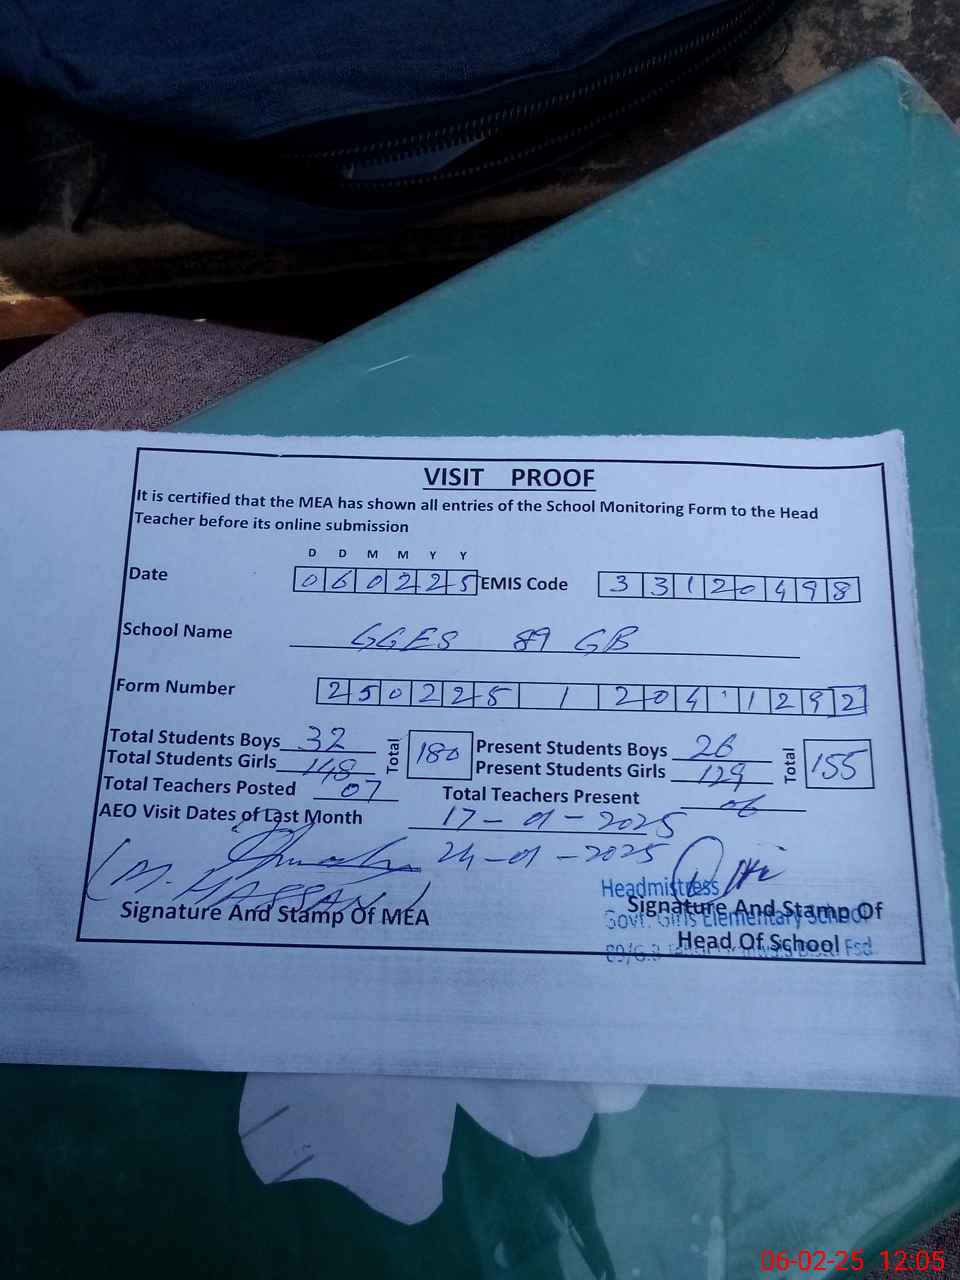 VISIT PROOF
It is certified that the MEA has shown all entries of the School Monitoring Form to the Head
Teacher before its online submission
D D M M Y Y
Date 060225 EMIS Code 33120498
School Name GGES 89 GB
Form Number 250225 1 204 1292
Total Students Boys 32 Total 180 Present Students Boys 26 Total 155
Total Students Girls 148 Present Students Girls 129
Total Teachers Posted 07 Total Teachers Present 06
AEO Visit Dates of Last Month 17-01-2025
24-01-2025
(M. HASSAN)
Signature And Stamp Of MEA
Headmistress
Signature And Stamp Of
Govt. Girls Elementary School
Head Of School
Fsd
06-02-25 12:05